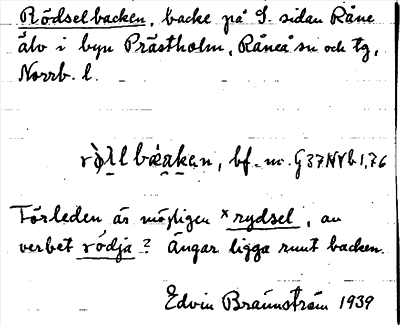 Rödselbacken, backe på S. sidan Råne
älv i byn Prästholm, Råneå sn och tg,
Norrb. l.
bf. nr. G 37 NVb 1,76
Förleden är möjligen *rydsel, av
verbet rödja? Ängar ligga runt backen.
Edvin Brännström 1939